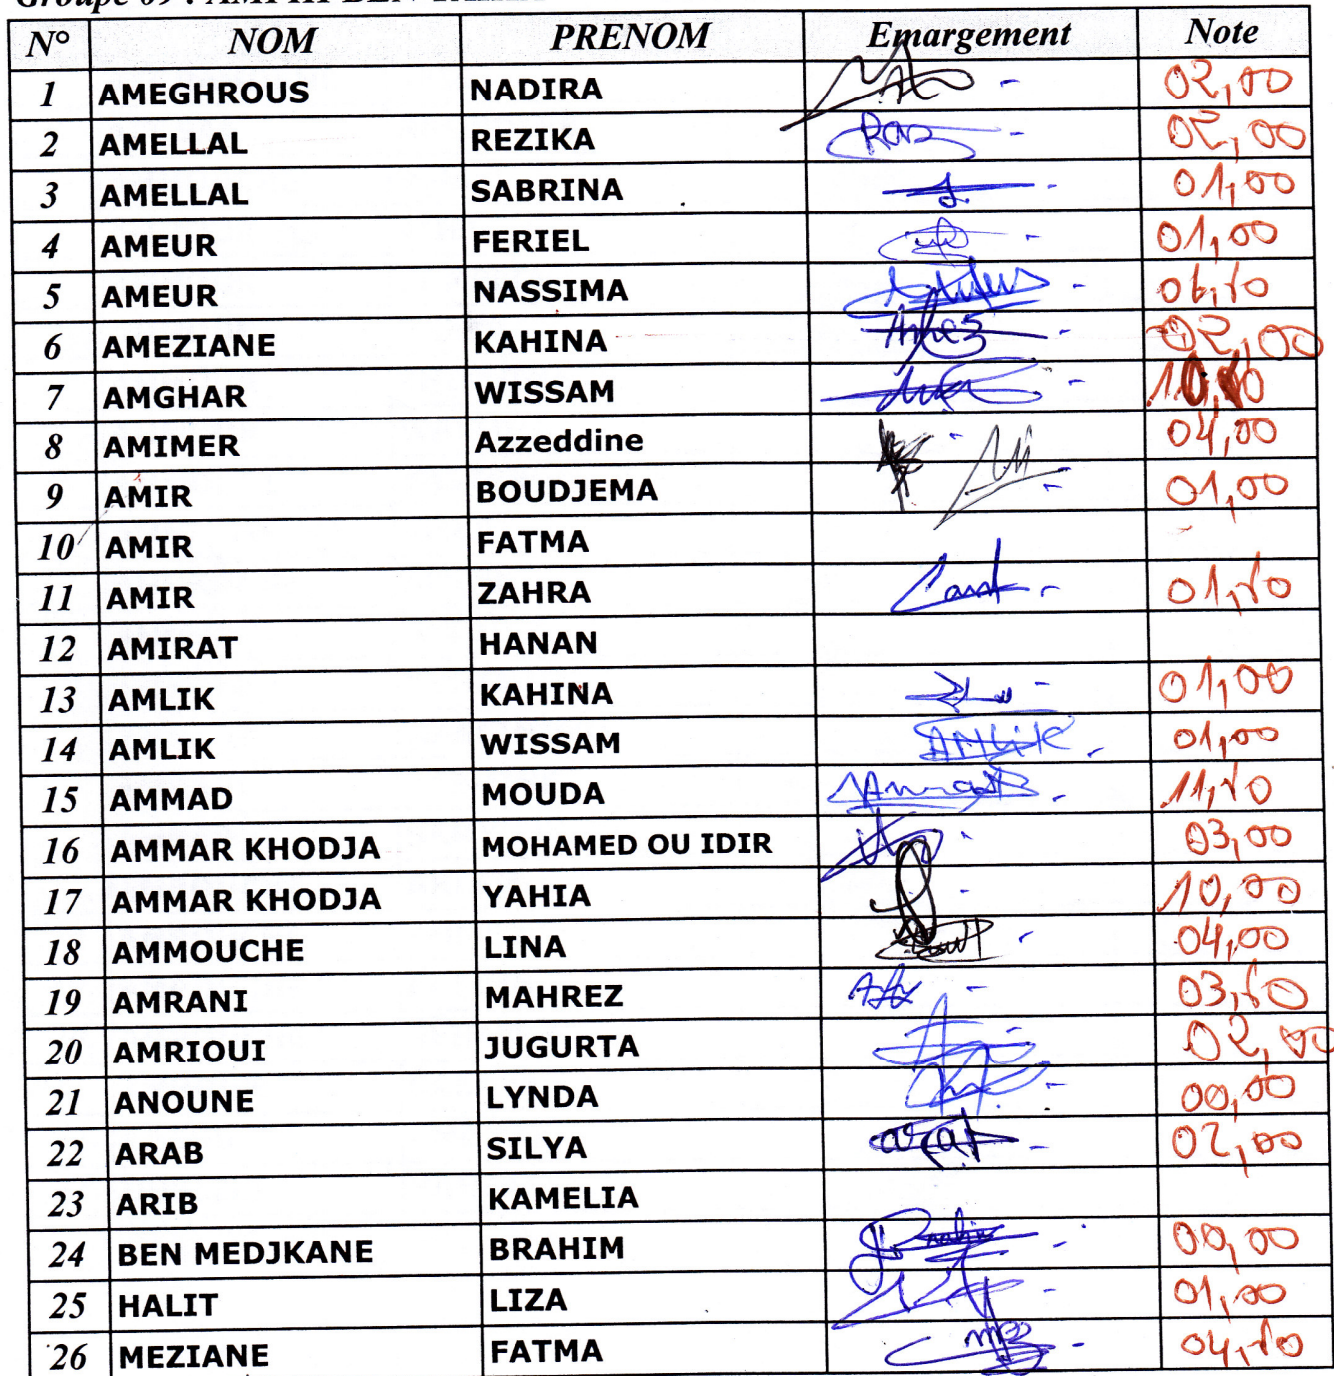 Groupe 09 : AMPHI BEN
N° NOM PRENOM Emargement Note
1 AMEGHROUS NADIRA 02,00
2 AMELLAL REZIKA 02,00
3 AMELLAL SABRINA 01,00
4 AMEUR FERIEL 01,00
5 AMEUR NASSIMA
6 AMEZIANE KAHINA 02,00
7 AMGHAR WISSAM
8 AMIMER Azzeddine 04,00
9 AMIR BOUDJEMA 01,00
10 AMIR FATMA
11 AMIR ZAHRA 01,50
12 AMIRAT HANAN
13 AMLIK KAHINA 01,00
14 AMLIK WISSAM AMLIK 01,00
15 AMMAD MOUDA 11,50
16 AMMAR KHODJA MOHAMED OU IDIR 03,00
17 AMMAR KHODJA YAHIA 10,00
18 AMMOUCHE LINA 04,00
19 AMRANI MAHREZ 03,50
20 AMRIOUI JUGURTA 02,00
21 ANOUNE LYNDA 00,00
22 ARAB SILYA 02,00
23 ARIB KAMELIA
24 BEN MEDJKANE BRAHIM 00,00
25 HALIT LIZA 01,00
26 MEZIANE FATMA 04,50